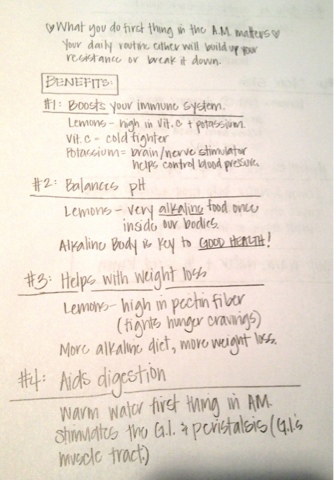 ♡What you do first thing in the A.M. matters♡
Your daily routine either will build up your
resistance or break it down.
BENEFITS:
#1: Boosts your immune system.
Lemons - high in vit.c + potassium.
Vit.c - cold fighter
Potassium = brain/nerve stimulator
helps control blood pressure.
#2: Balances pH
Lemons - very alkaline food once
inside our bodies.
Alkaline Body is key to GOOD HEALTH!
#3: Helps with weight loss
Lemons - high in pectin fiber
(fights hunger cravings)
More alkaline diet, more weight loss.
#4: Aids digestion
Warm water first thing in AM.
stimulates the G.I. & peristalsis (G.I.'s
muscle tract)